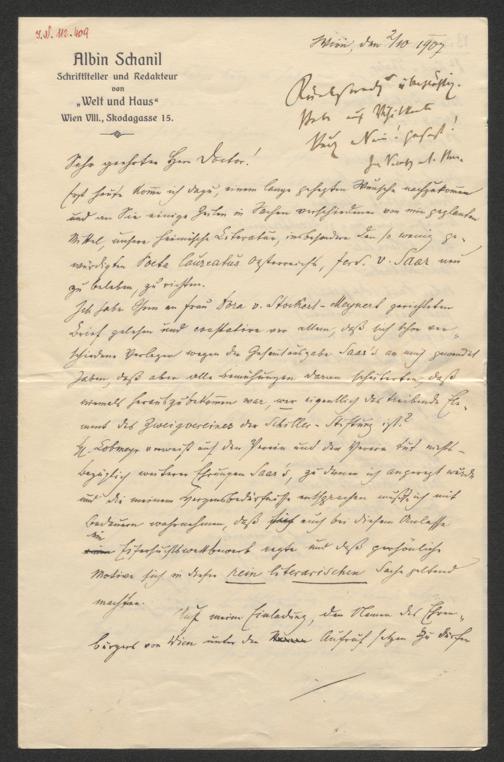 J.N. 112.409
Albin Schanil
Schriftsteller und Redakteur
von
„Welt und Haus“
Wien VIII., Skodagasse 15.
Wien, den 2/10 1907
Sehr geehrter Herr Doctor!
Erst heute komme ich dazu, einem lange gehegten Wunsche nachzukommen
und an Sie einige Zeilen in Sachen verschiedener von mir geplanten
Mittel, unsere heimische Literatur, insbesondere den so wenig ge-
würdigten Poeta laureatus Oesterreichs, Ferd. v. Saar neu
zu beleben, zu richten.
Ich habe Ihren an Frau Dora v. Stockert-Meynert gerichteten
Brief gelesen und constatire vor allem, daß sich schon ver-
schiedene Verleger wegen der Gesamtausgabe Saar's an mich gewendet
haben, daß aber alle Bemühungen daran scheiterten, daß
niemals herauszubekommen war, wer eigentlich das treibende Ele-
ment des Zweigvereines der Schiller-Stiftung ist?
H. Lobmeyr verweist auf den Verein und der Verein tut nichts.
Bezüglich weiterer Ehrungen Saar's, zu denen ich angeregt wurde
und die meinem Herzensbedürfnisse entsprachen mußte ich mit
Bedauern wahrnehmen, daß sich auch bei diesem Anlasse
ein Eifersuchtswettbewerb regte und daß persönliche
Motive sich in dieser rein literarischen Sache geltend
machten.
Auf meine Einladung, den Namen des Ehren-
bürgers von Wien unter den Aufruf setzen zu dürfen